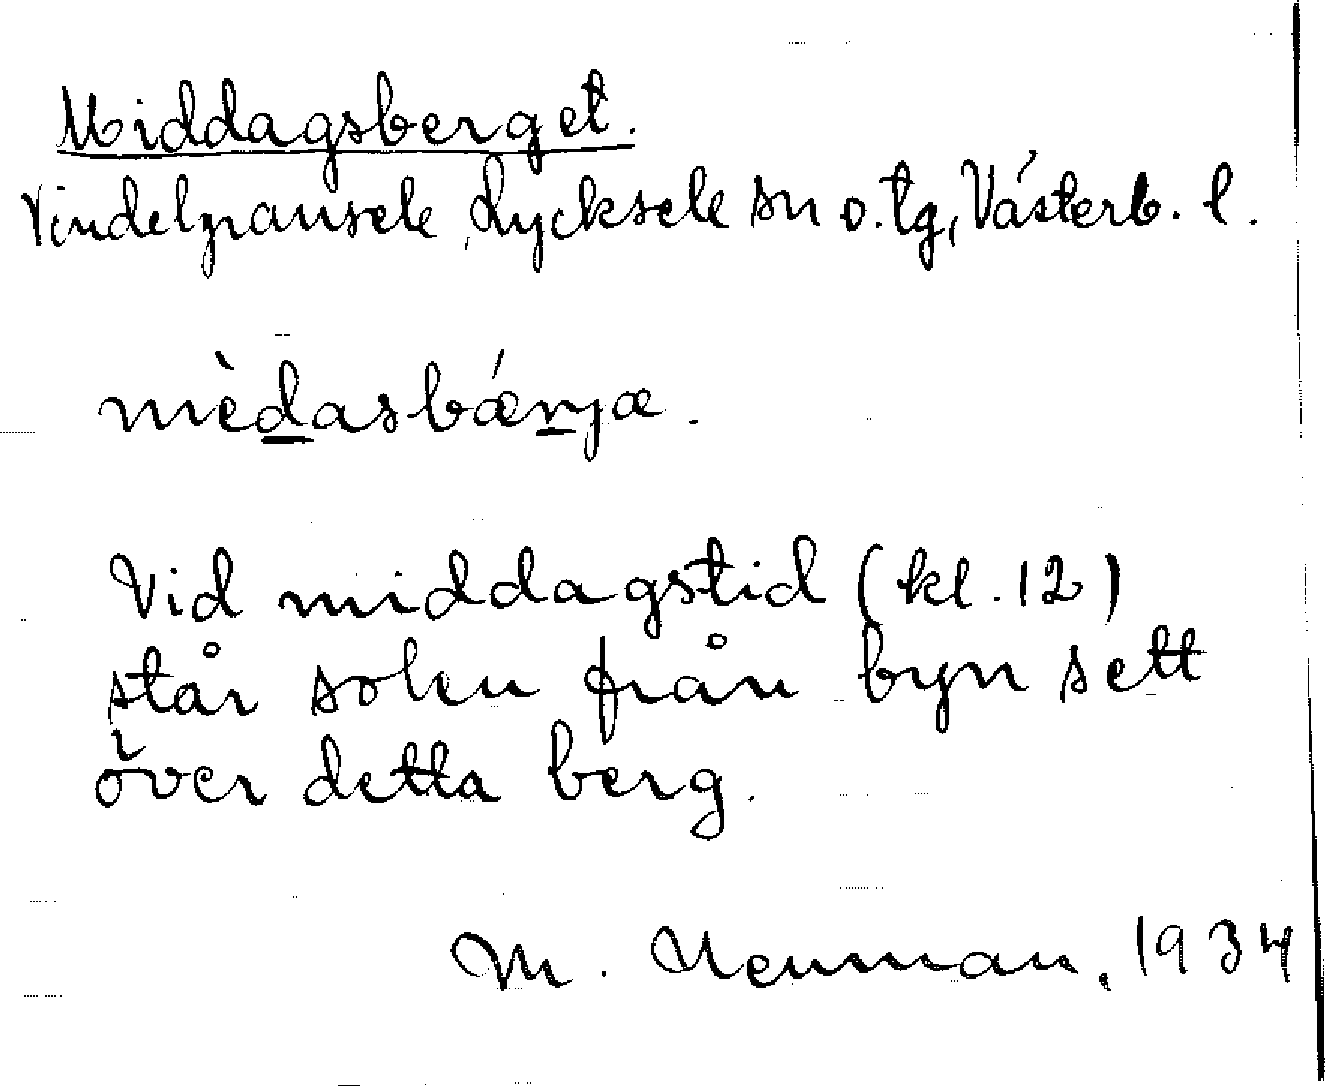 Middagsberget.
Vindelgransele, Lycksele sn o. tg, Västerb. l.
mèdasbǽrjæ.
Vid middagstid (kl. 12)
står solen från byn sett
över detta berg.
M. Neuman, 1934